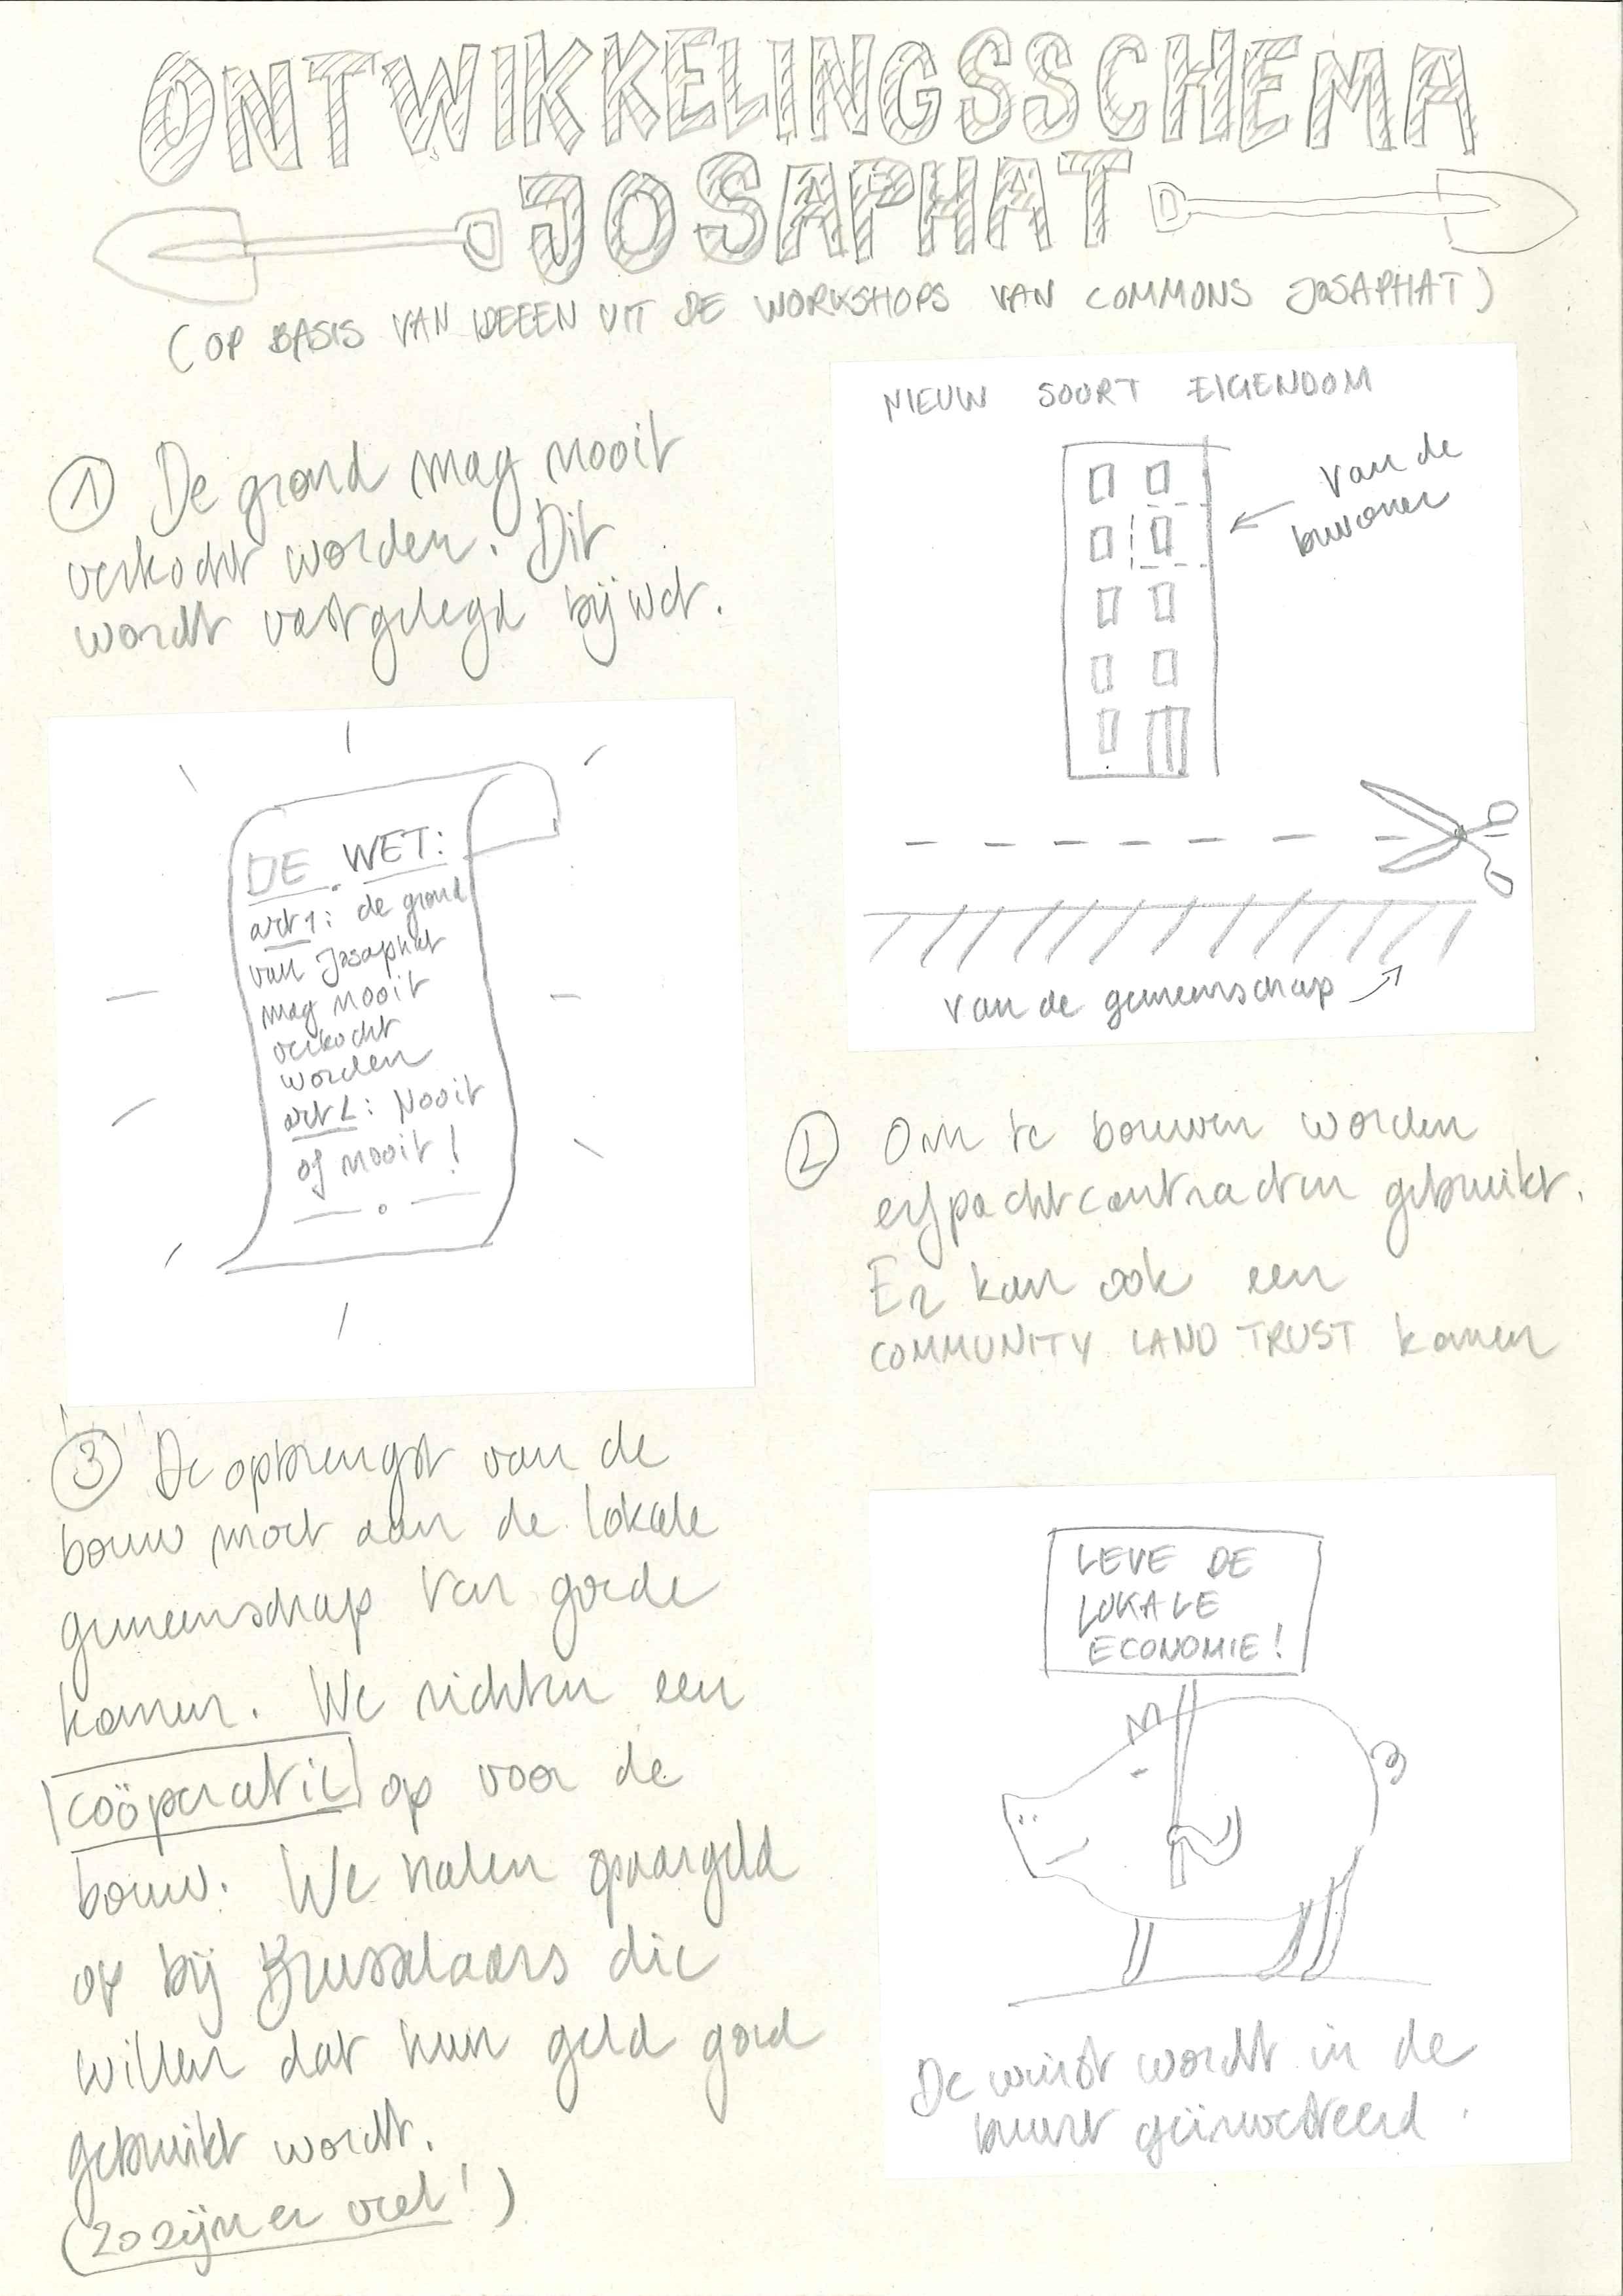 ONTWIKKELINGSSCHEMA
JOSAPHAT
(OP BASIS VAN IDEEEN UIT DE WORKSHOPS VAN COMMONS JOSAPHAT)
① De grond mag nooit
verkocht worden. Dit
wordt vastgelegd bij wet.
DE WET:
art 1: de grond
van Josaphat
mag nooit
verkocht
worden
art 2: Nooit
of nooit!
NIEUW SOORT EIGENDOM
van de
bewoner
van de gemeenschap
② Om te bouwen worden
erfpachtcontracten gebruikt.
Er kan ook een
COMMUNITY LAND TRUST komen
③ De opbrengst van de
bouw moet aan de lokale
gemeenschap ten goede
komen. We richten een
coöperatie op voor de
bouw. We halen spaargeld
op bij Brusselaars die
willen dat hun geld goed
gebruikt wordt.
(zo zijn er veel!)
LEVE DE
LOKALE
ECONOMIE!
De winst wordt in de
buurt geïnvesteerd.